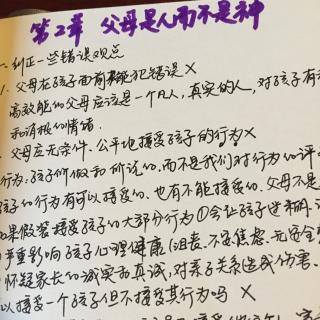 第2章 父母是人而不是神
一. 纠正一些错误观点
1. 父母在孩子面前不能犯错误 ×
高效能的父母应该是一个凡人,真实的人,对孩子有
和消极的情绪.
父母应无条件、公平地接受孩子的行为 ×
行为:孩子所做和所说的,而不是我们对行为的评
孩子的行为有可以接受的,也有不能接受的,父母不是
如果假装接受孩子的大部分行为 ①会让孩子迷糊
严重影响孩子心理健康(沮丧、不安焦虑、无安全
怀疑家长的诚实和真诚,对亲子关系造成伤害.
以接受一个孩子但不接受其行为吗 ×